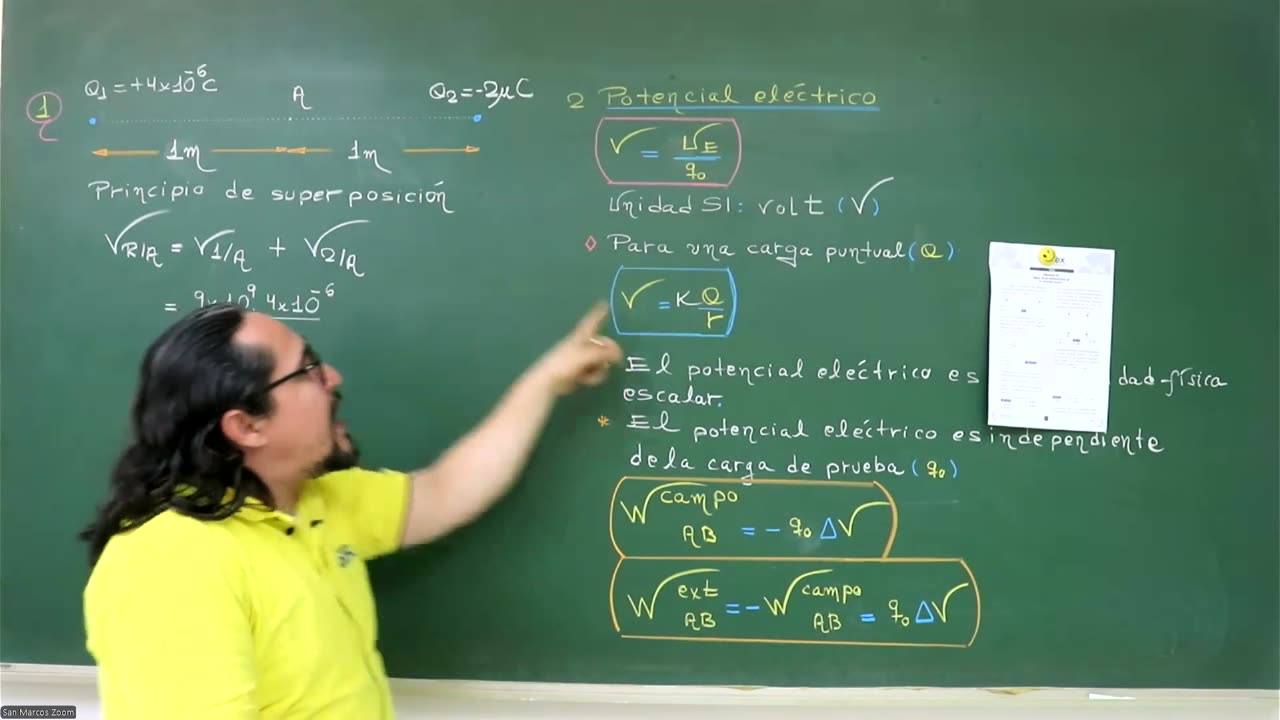 1
Q1 = +4x10^-6 C
A
Q2 = -2μC
1m 1m
Principio de superposición
V R/A = V 1/A + V 2/A
= 9x10^9 . 4x10^-6
2 Potencial eléctrico
V = U_E / q0
Unidad SI: volt (V)
◊ Para una carga puntual (Q)
V = K Q / r
El potencial eléctrico es dad física
escalar.
* El potencial eléctrico es independiente
de la carga de prueba (q0)
W campo AB = - q0 ΔV
W ext AB = - W campo AB = q0 ΔV
San Marcos Zoom